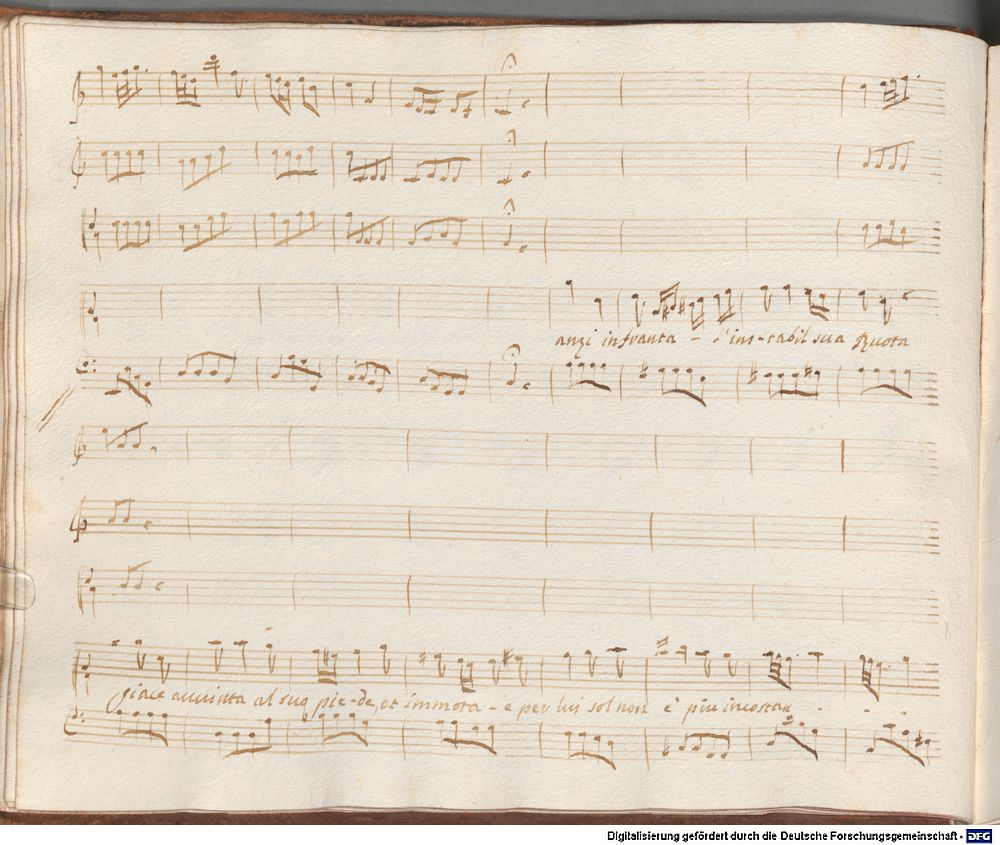 anzi infranta - l'ins-tabil sua Ruota
giace avvinta al suo pie-de, et immota - e per lui sol non è piu incostan
Digitalisierung gefördert durch die Deutsche Forschungsgemeinschaft - DFG